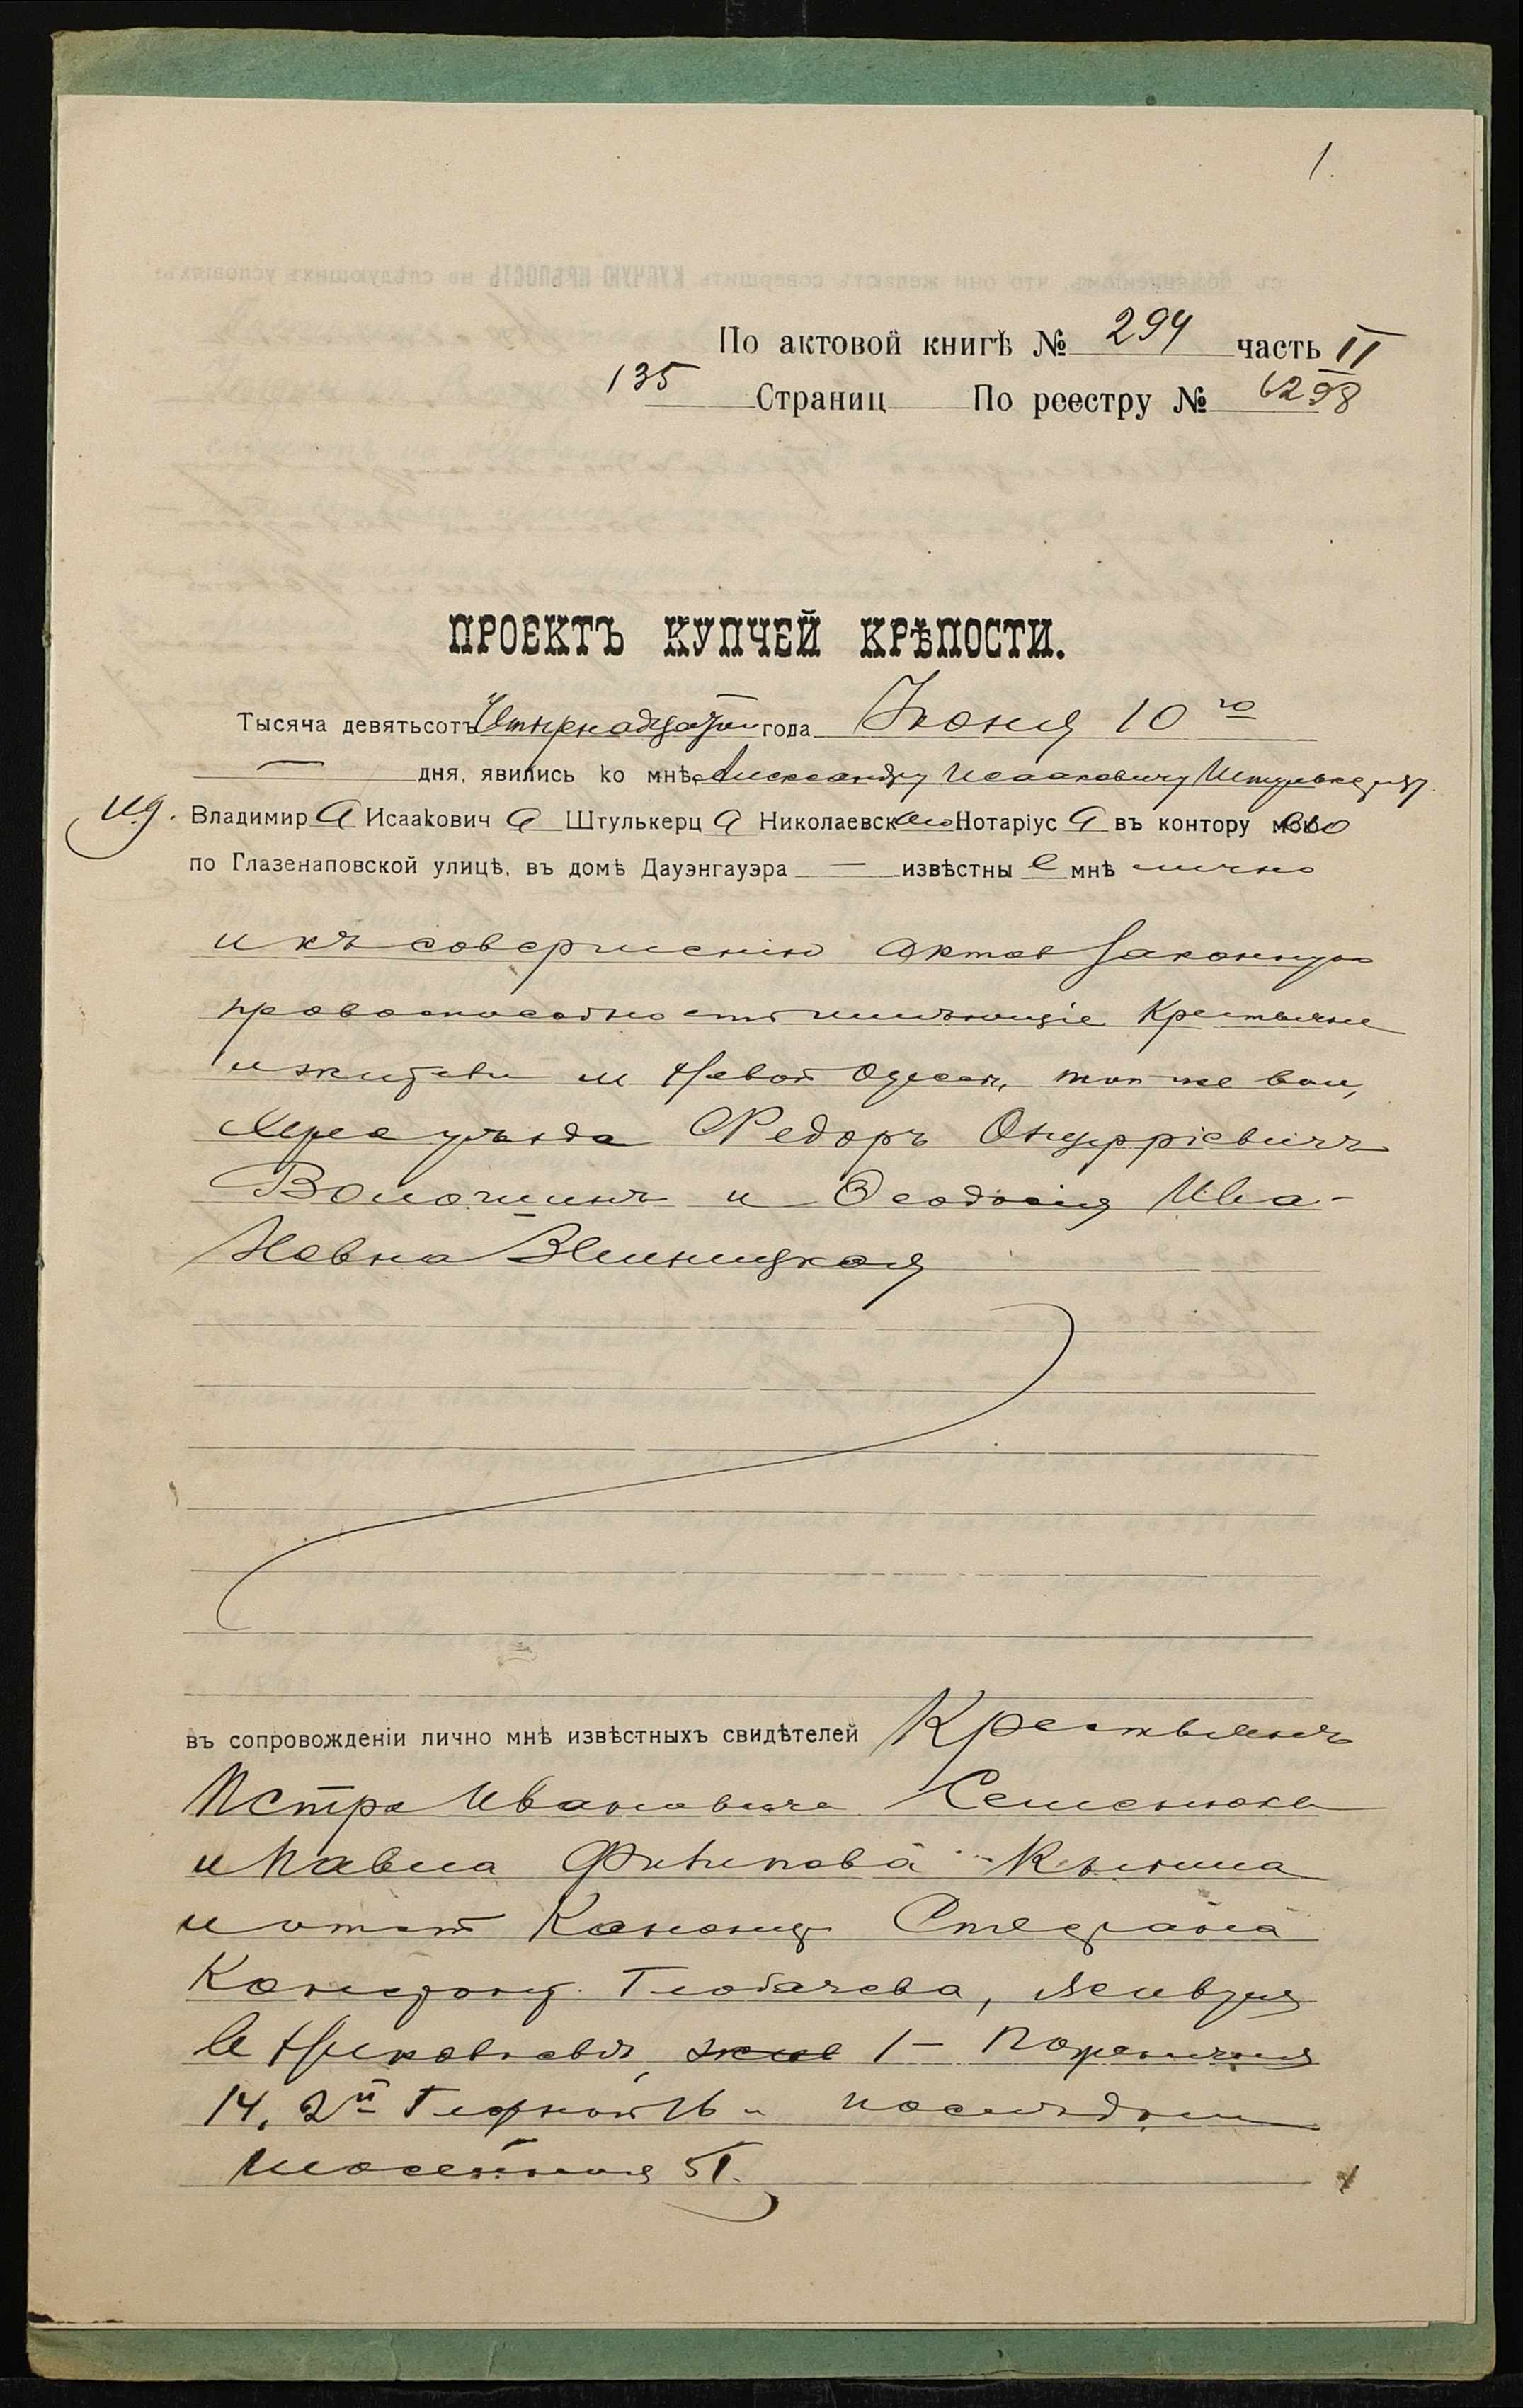 1.
По актовой книгѣ № 294 часть II
135 Страниц По реестру № 6298
ПРОЕКТЪ КУПЧЕЙ КРѢПОСТИ.
Тысяча девятьсотъ Четырнадцатаго года Іюня 10го
дня, явились ко мнѣ, Александру Исааковичу Штулькерцу
И.д. Владимира Исааковича Штулькерца Николаевскаго Нотаріуса въ контору его
по Глазенаповской улицѣ, въ домѣ Дауэнгауэра — извѣстные мнѣ лично
и къ совершенію актов законную
правоспособность имѣющіе Крестьяне
и жители м Новой Одессы, той же вол,
Херс уѣзда Федоръ Онуфріевичъ
Волошинъ и Феодосія Ива-
новна Винницкая
въ сопровожденіи лично мнѣ извѣстныхъ свидѣтелей Крестьянъ
Петра Ивановича Семенюка
и Павла Филипова
и Степана
Глобачева,
1- Пограничная
14, 2й 16 и послѣдній
51.